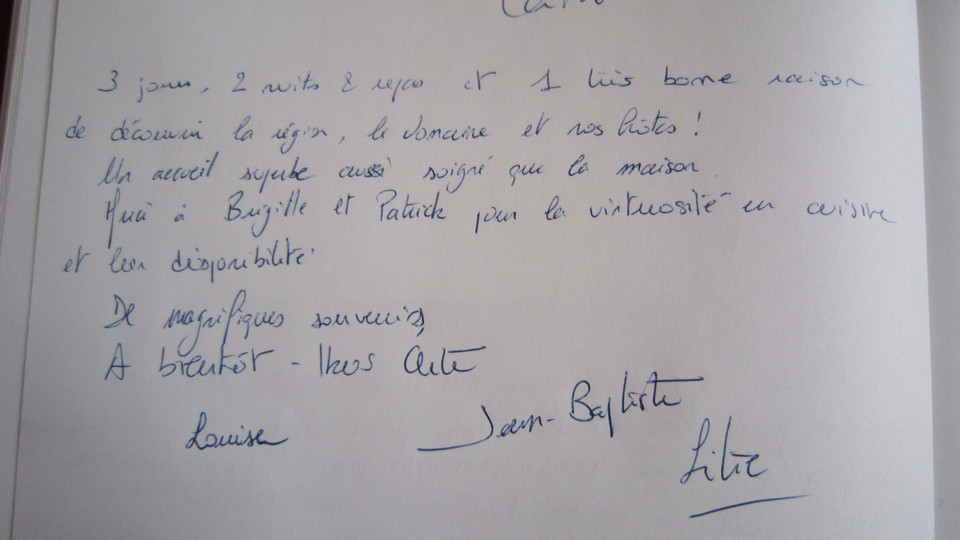 3 jours, 2 nuits 2 repas et 1 très bonne raison
de découvrir la région, le domaine et nos hôtes !
Un accueil superbe aussi soigné que la maison.
Merci à Brigitte et Patrick pour la virtuosité en cuisine
et leur disponibilité.
De magnifiques souvenirs,
A bientôt -
Louise
Jean-Baptiste